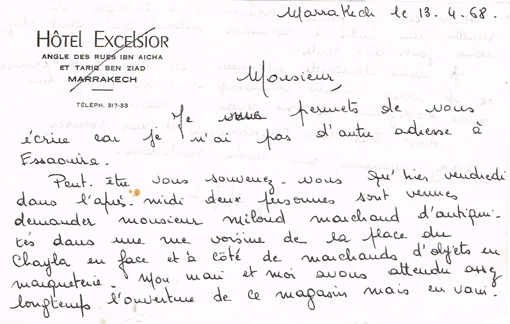 Marrakech le 13.4.68.
HÔTEL EXCELSIOR
ANGLE DES RUES IBN AICHA
ET TARIQ BEN ZIAD
MARRAKECH
TÉLÉPH. 317-33
Monsieur,
Je vous permets de vous
écrire car je n'ai pas d'autre adresse à
Essaouira.
Peut-être vous souvenez-vous qu'hier vendredi
dans l'après-midi deux personnes sont venues
demander monsieur Miloud marchand d'antiqui-
tés dans une rue voisine de la place du
Chayla en face et à côté de marchands d'objets en
marqueterie. Mon mari et moi avons attendu assez
longtemps l'ouverture de ce magasin mais en vain.